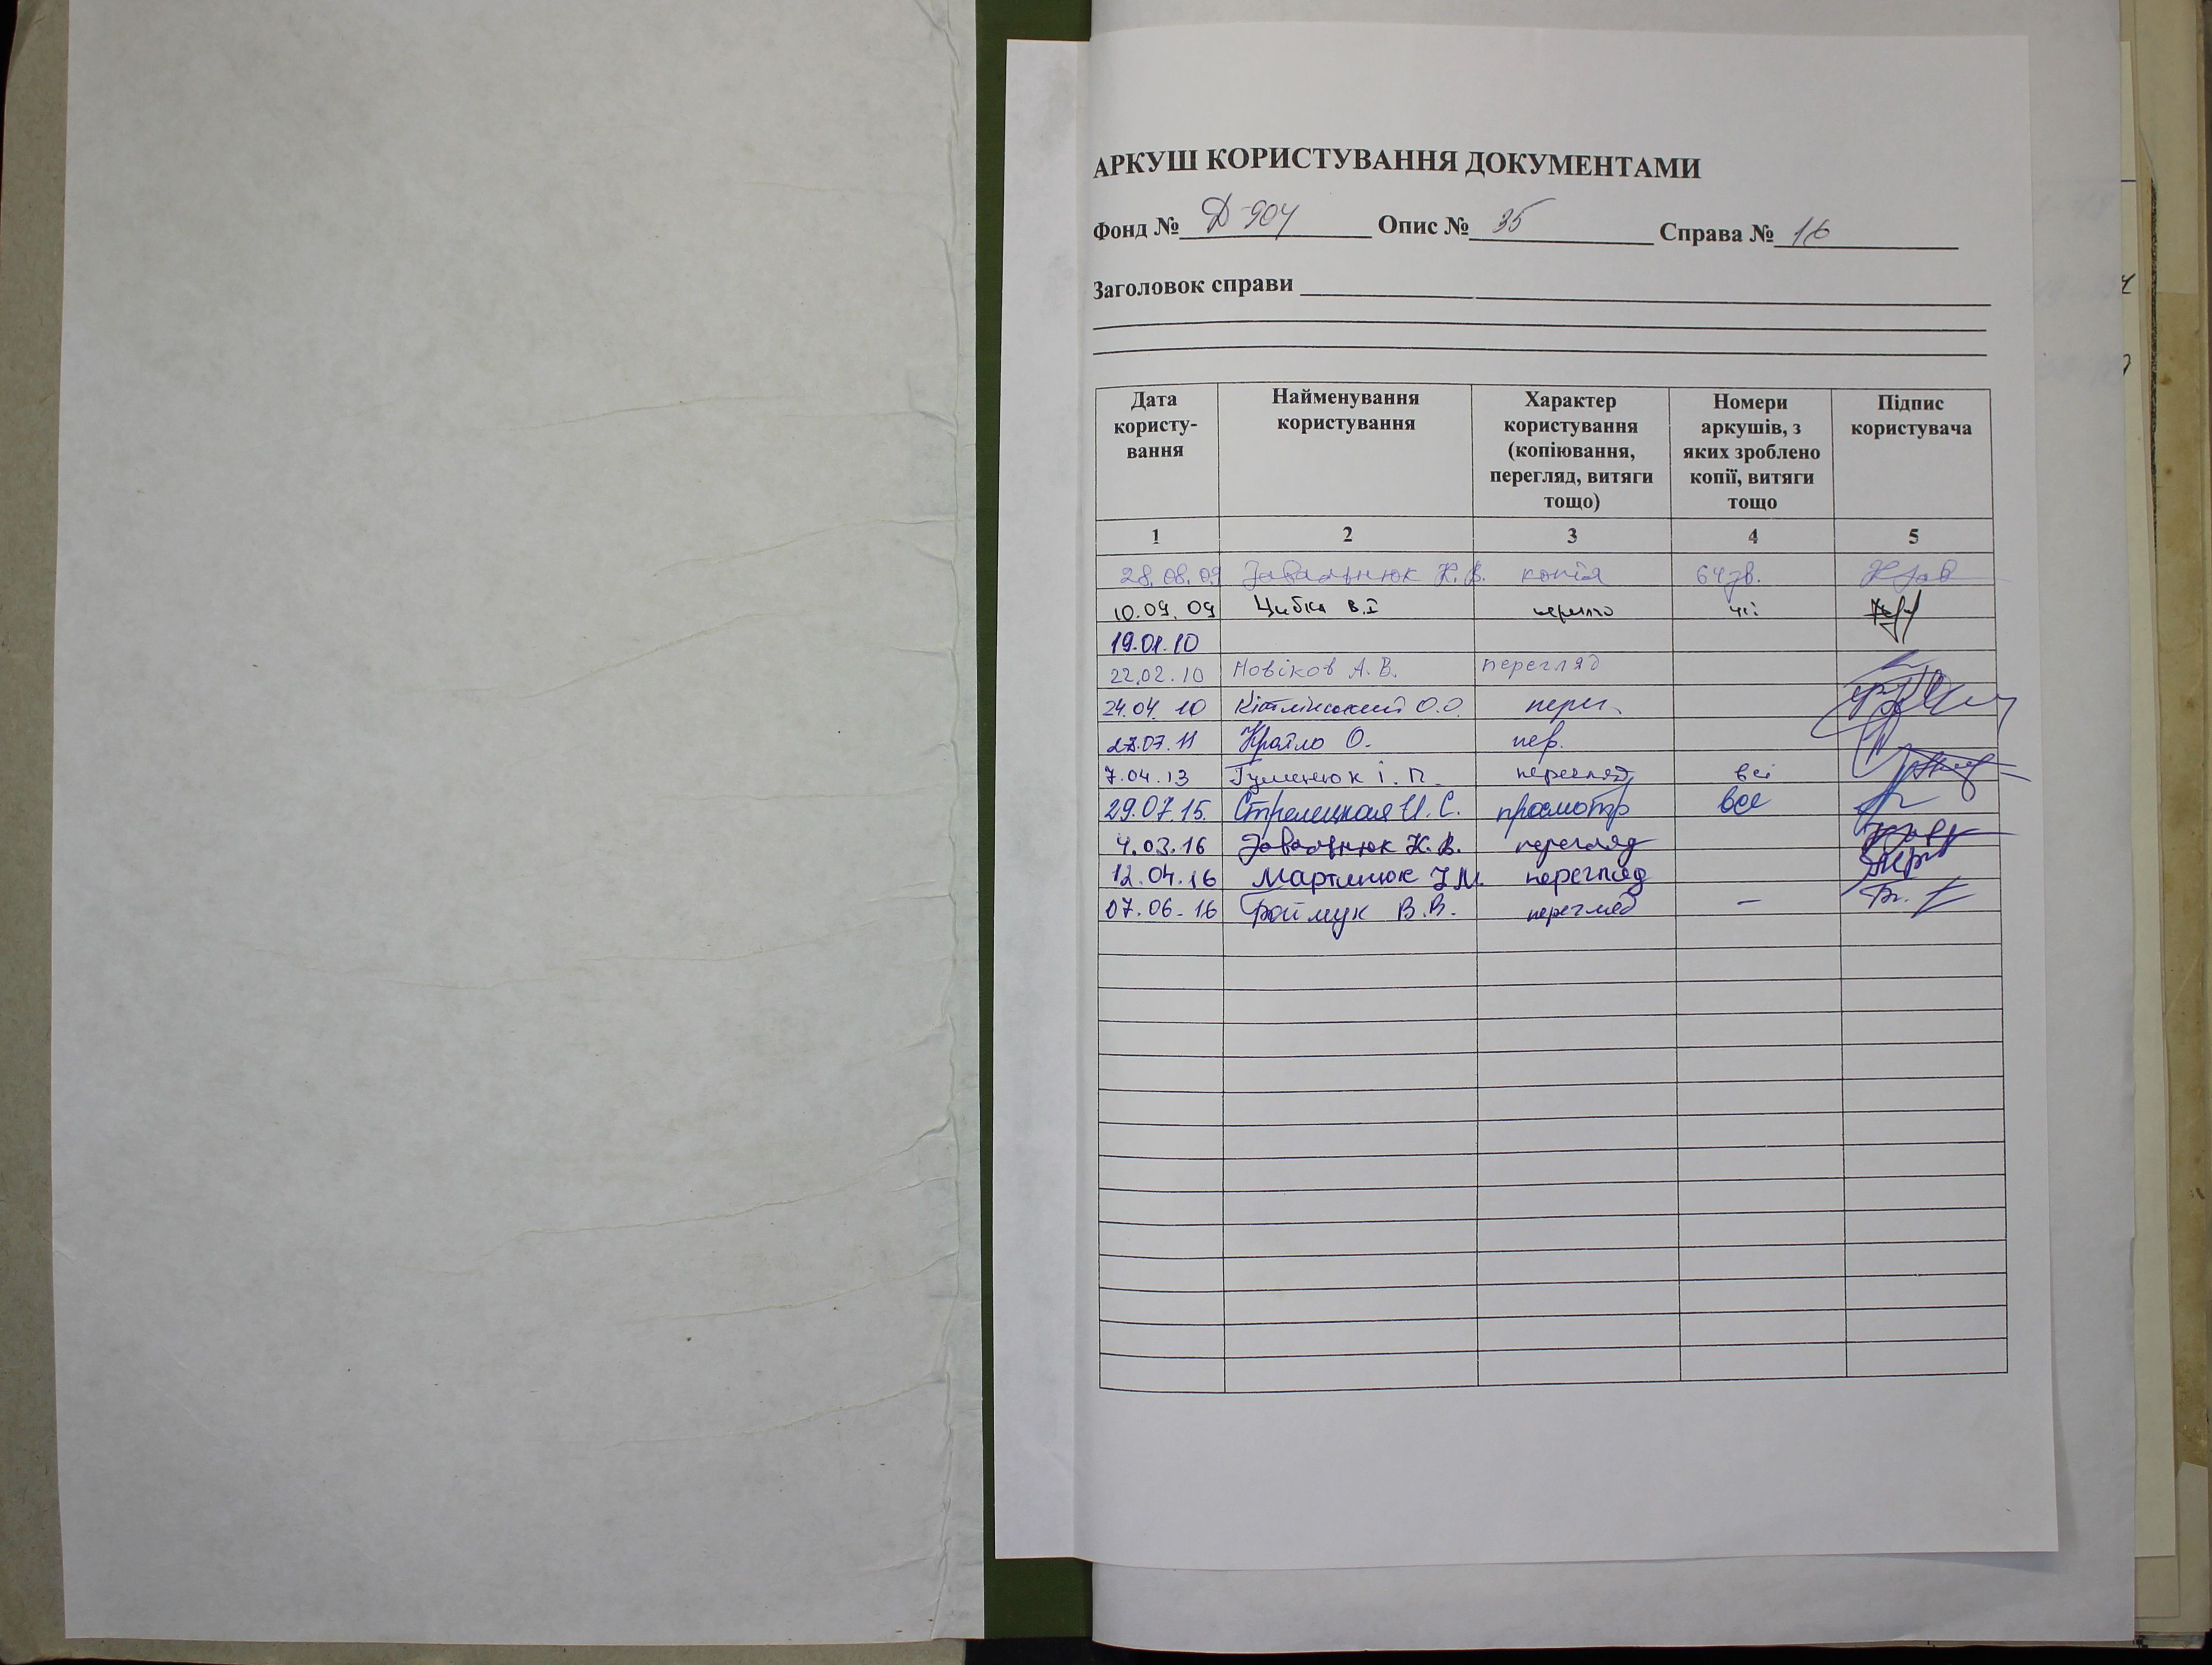 АРКУШ КОРИСТУВАННЯ ДОКУМЕНТАМИ
Фонд № Д-904 Опис № 35 Справа № 16
Заголовок справи
Дата користу-вання Найменування користування Характер користування (копіювання, перегляд, витяги тощо) Номери аркушів, з яких зроблено копії, витяги тощо Підпис користувача
1 2 3 4 5
28.08.09 Завальнюк К.В. копія 64 зв.
10.09.09 Цибка В.І
19.01.10
22.02.10 Новіков А.В. перегляд
24.04.10 О.О. перег.
27.07.11 О. пер.
7.04.13 Гуменюк І.П. перегляд всі
29.07.15. Стрелецкая И.С. просмотр все
4.03.16 Завальнюк К.В. перегляд
12.04.16 Мартинюк І.М. перегляд
07.06.16 Фоймук В.В. перегляд —